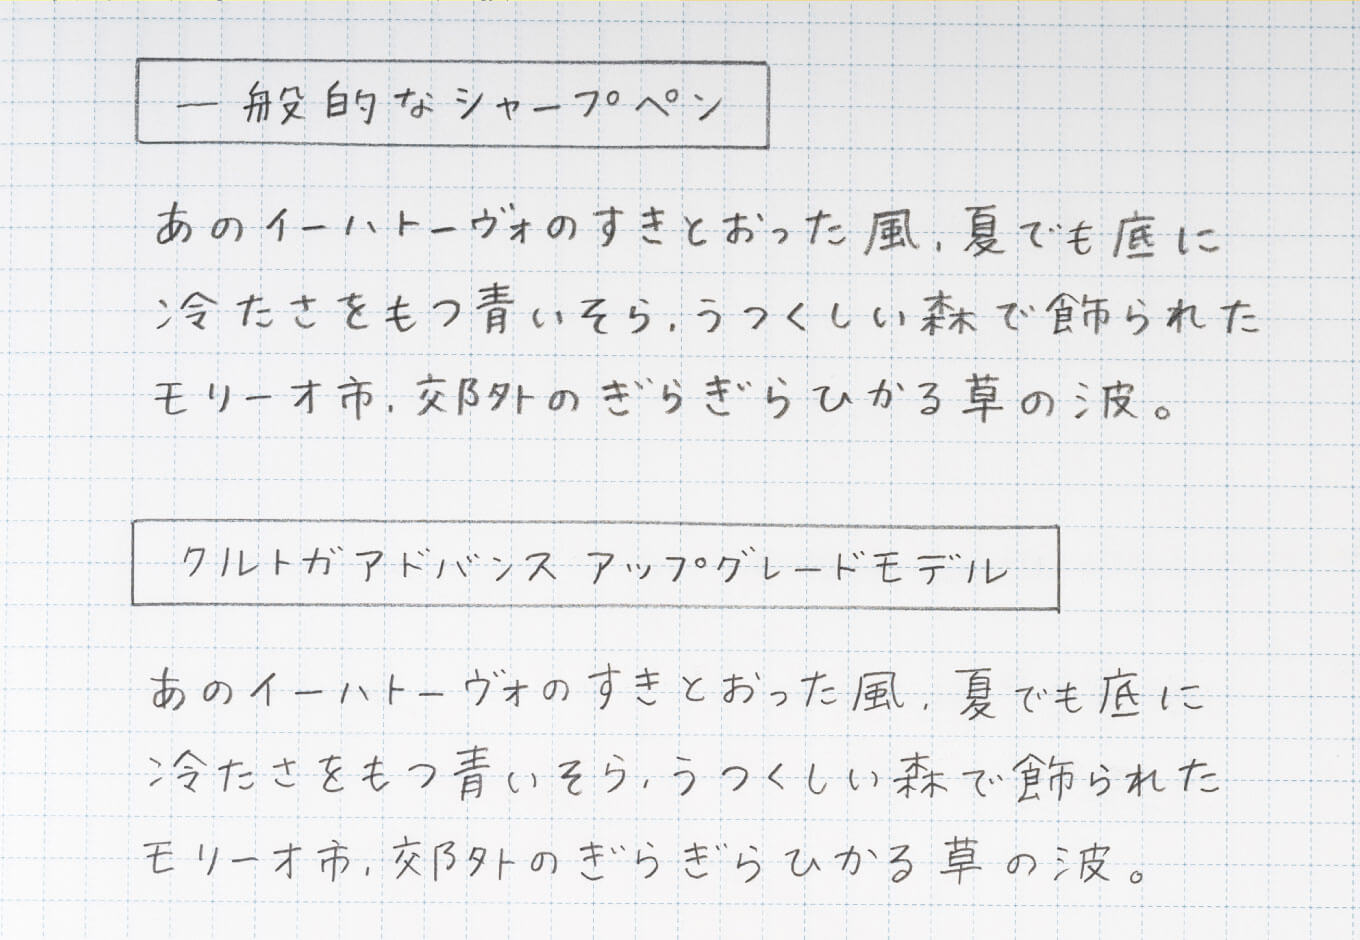 一般的なシャープペン
あのイーハトーヴォのすきとおった風、夏でも底に
冷たさをもつ青いそら、うつくしい森で飾られた
モリーオ市、郊外のぎらぎらひかる草の波。
クルトガアドバンス アップグレードモデル
あのイーハトーヴォのすきとおった風、夏でも底に
冷たさをもつ青いそら、うつくしい森で飾られた
モリーオ市、郊外のぎらぎらひかる草の波。